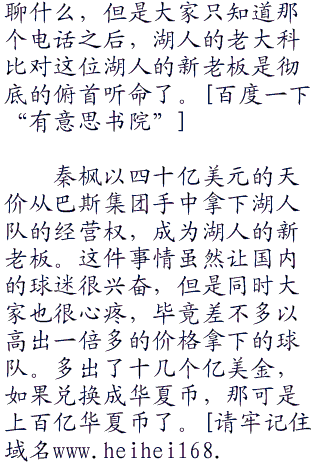 聊什么，但是大家只知道那
个电话之后，湖人的老大科
比对这位湖人的新老板是彻
底的俯首听命了。[百度一下
“有意思书院”]
秦枫以四十亿美元的天
价从巴斯集团手中拿下湖人
队的经营权，成为湖人的新
老板。这件事情虽然让国内
的球迷很兴奋，但是同时大
家也很心疼，毕竟差不多以
高出一倍多的价格拿下的球
队。多出了十几个亿美金，
如果兑换成华夏币，那可是
上百亿华夏币了。[请牢记住
域名www.heihei168.